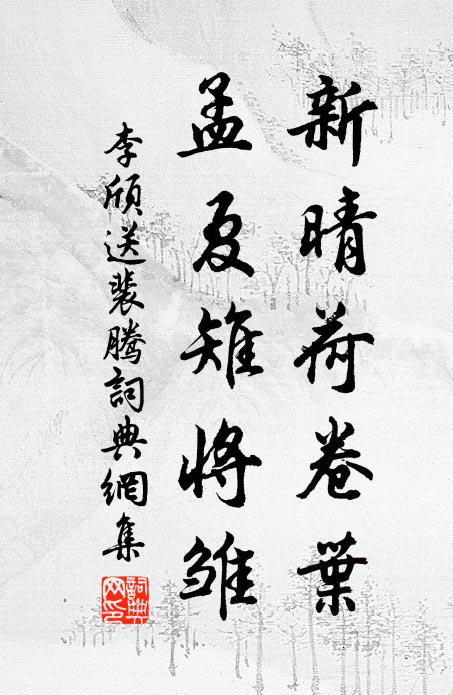 新晴荷卷葉
孟夏雉將雛
李頎送裴騰詞典網集
詞典網印